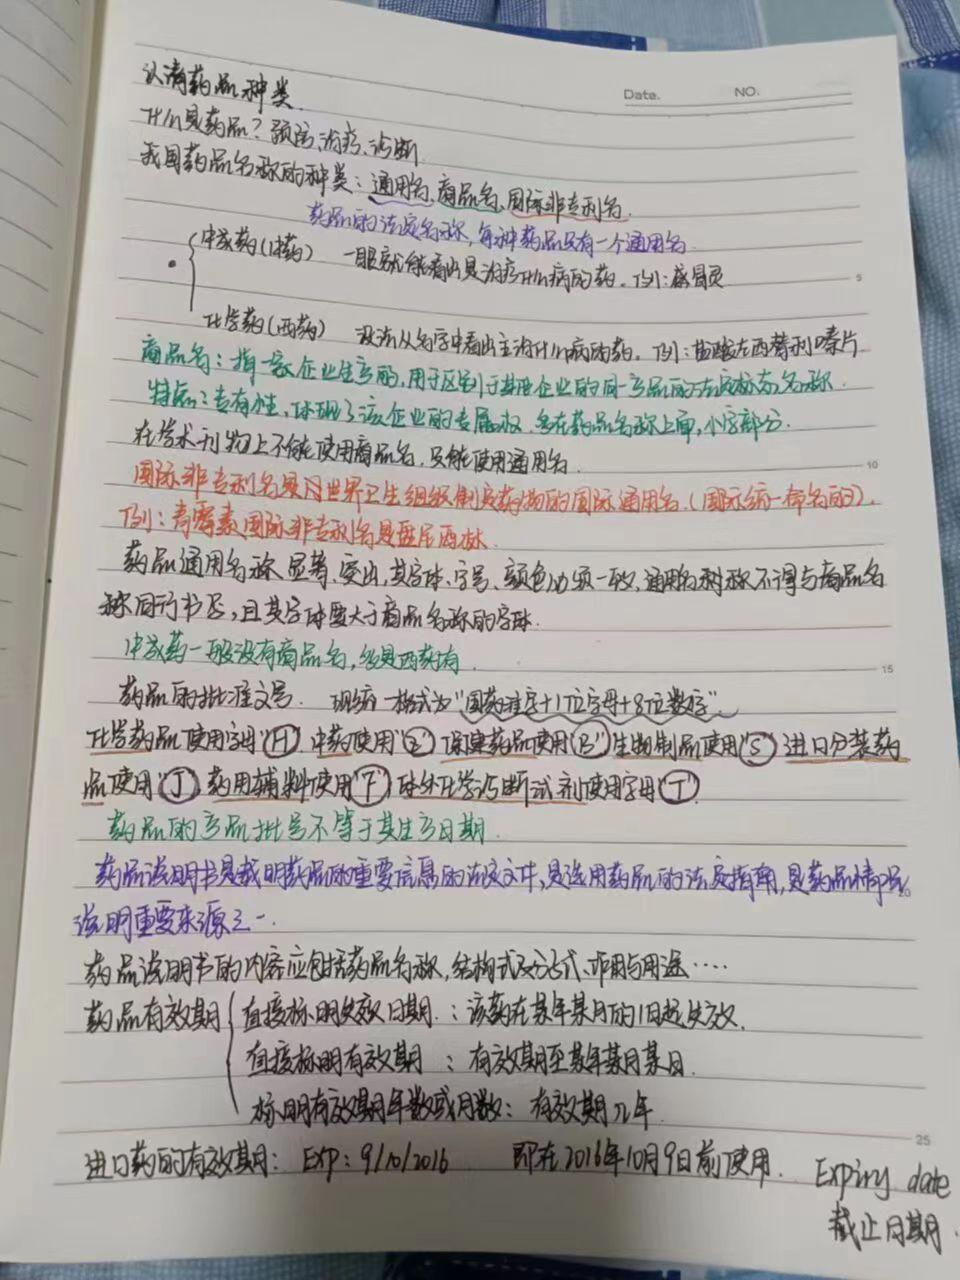 Date.　NO.
认清药品种类.
什么是药品？预防、治疗、诊断.
我国药品名称的种类：通用名、商品名、国际非专利名.
药品的法定名称，每种药品只有一个通用名.
中成药(中药)　一眼就能看出是治疗什么病的药。例：感冒灵
5
化学药(西药)　没法从名字中看出主治什么病的药。例：盐酸左西替利嗪片
商品名：指一家企业生产的，用于区别于其他企业的同一产品的法定标志名称.
特点：专有性，体现了该企业的专属权，多在药品名称上面，小字部分.
在学术刊物上不能使用商品名，只能使用通用名.
10
国际非专利名是由世界卫生组织制定药物的国际通用名.(国际统一命名的).
例：青霉素国际非专利名是盘尼西林.
药品通用名称显著、突出，其字体、字号、颜色必须一致，通用名称不得与商品名
称同行书写，且其字体要大于商品名称的字体.
中成药一般没有商品名，纯是西药有.
15
药品的批准文号.　现统一格式为"国药准字+1位字母+8位数字".
化学药品使用字母"H"中药使用"Z"保健药品使用"B"生物制品使用"S"进口分装药
品使用"J"药用辅料使用"F"体外化学诊断试剂使用字母"T".
药品的产品批号不等于其生产日期.
药品说明书是载明药品的重要信息的法定文件，是选用药品的法定指南，是药品情况
20
说明重要来源之一.
药品说明书的内容应包括药品名称，结构式及分子式、作用与用途····
药品有效期　直接标明失效日期.：该药在某年某月的1日起失效.
直接标明有效期　：有效期至某年某月某日.
标明有效期年数或月数：有效期几年.
25
进口药的有效期：Exp：9/10/2016　即在2016年10月9日前使用.　Expiry date
截止日期.